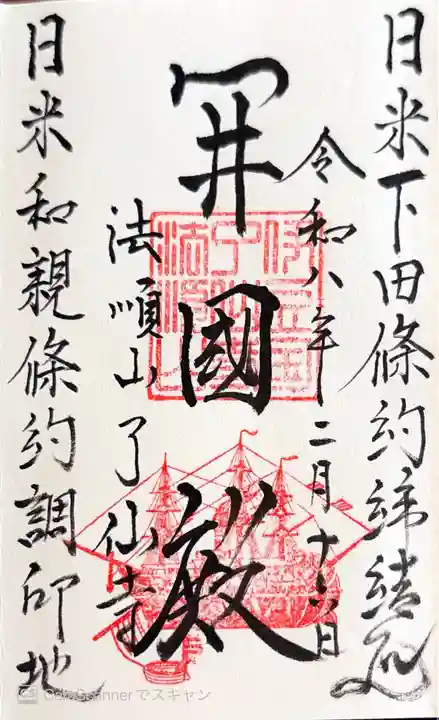 日米下田條約締結
令和八年二月十六日
開國
法順山了仙寺
日米和親條約調印地
CS CamScanner でスキャン